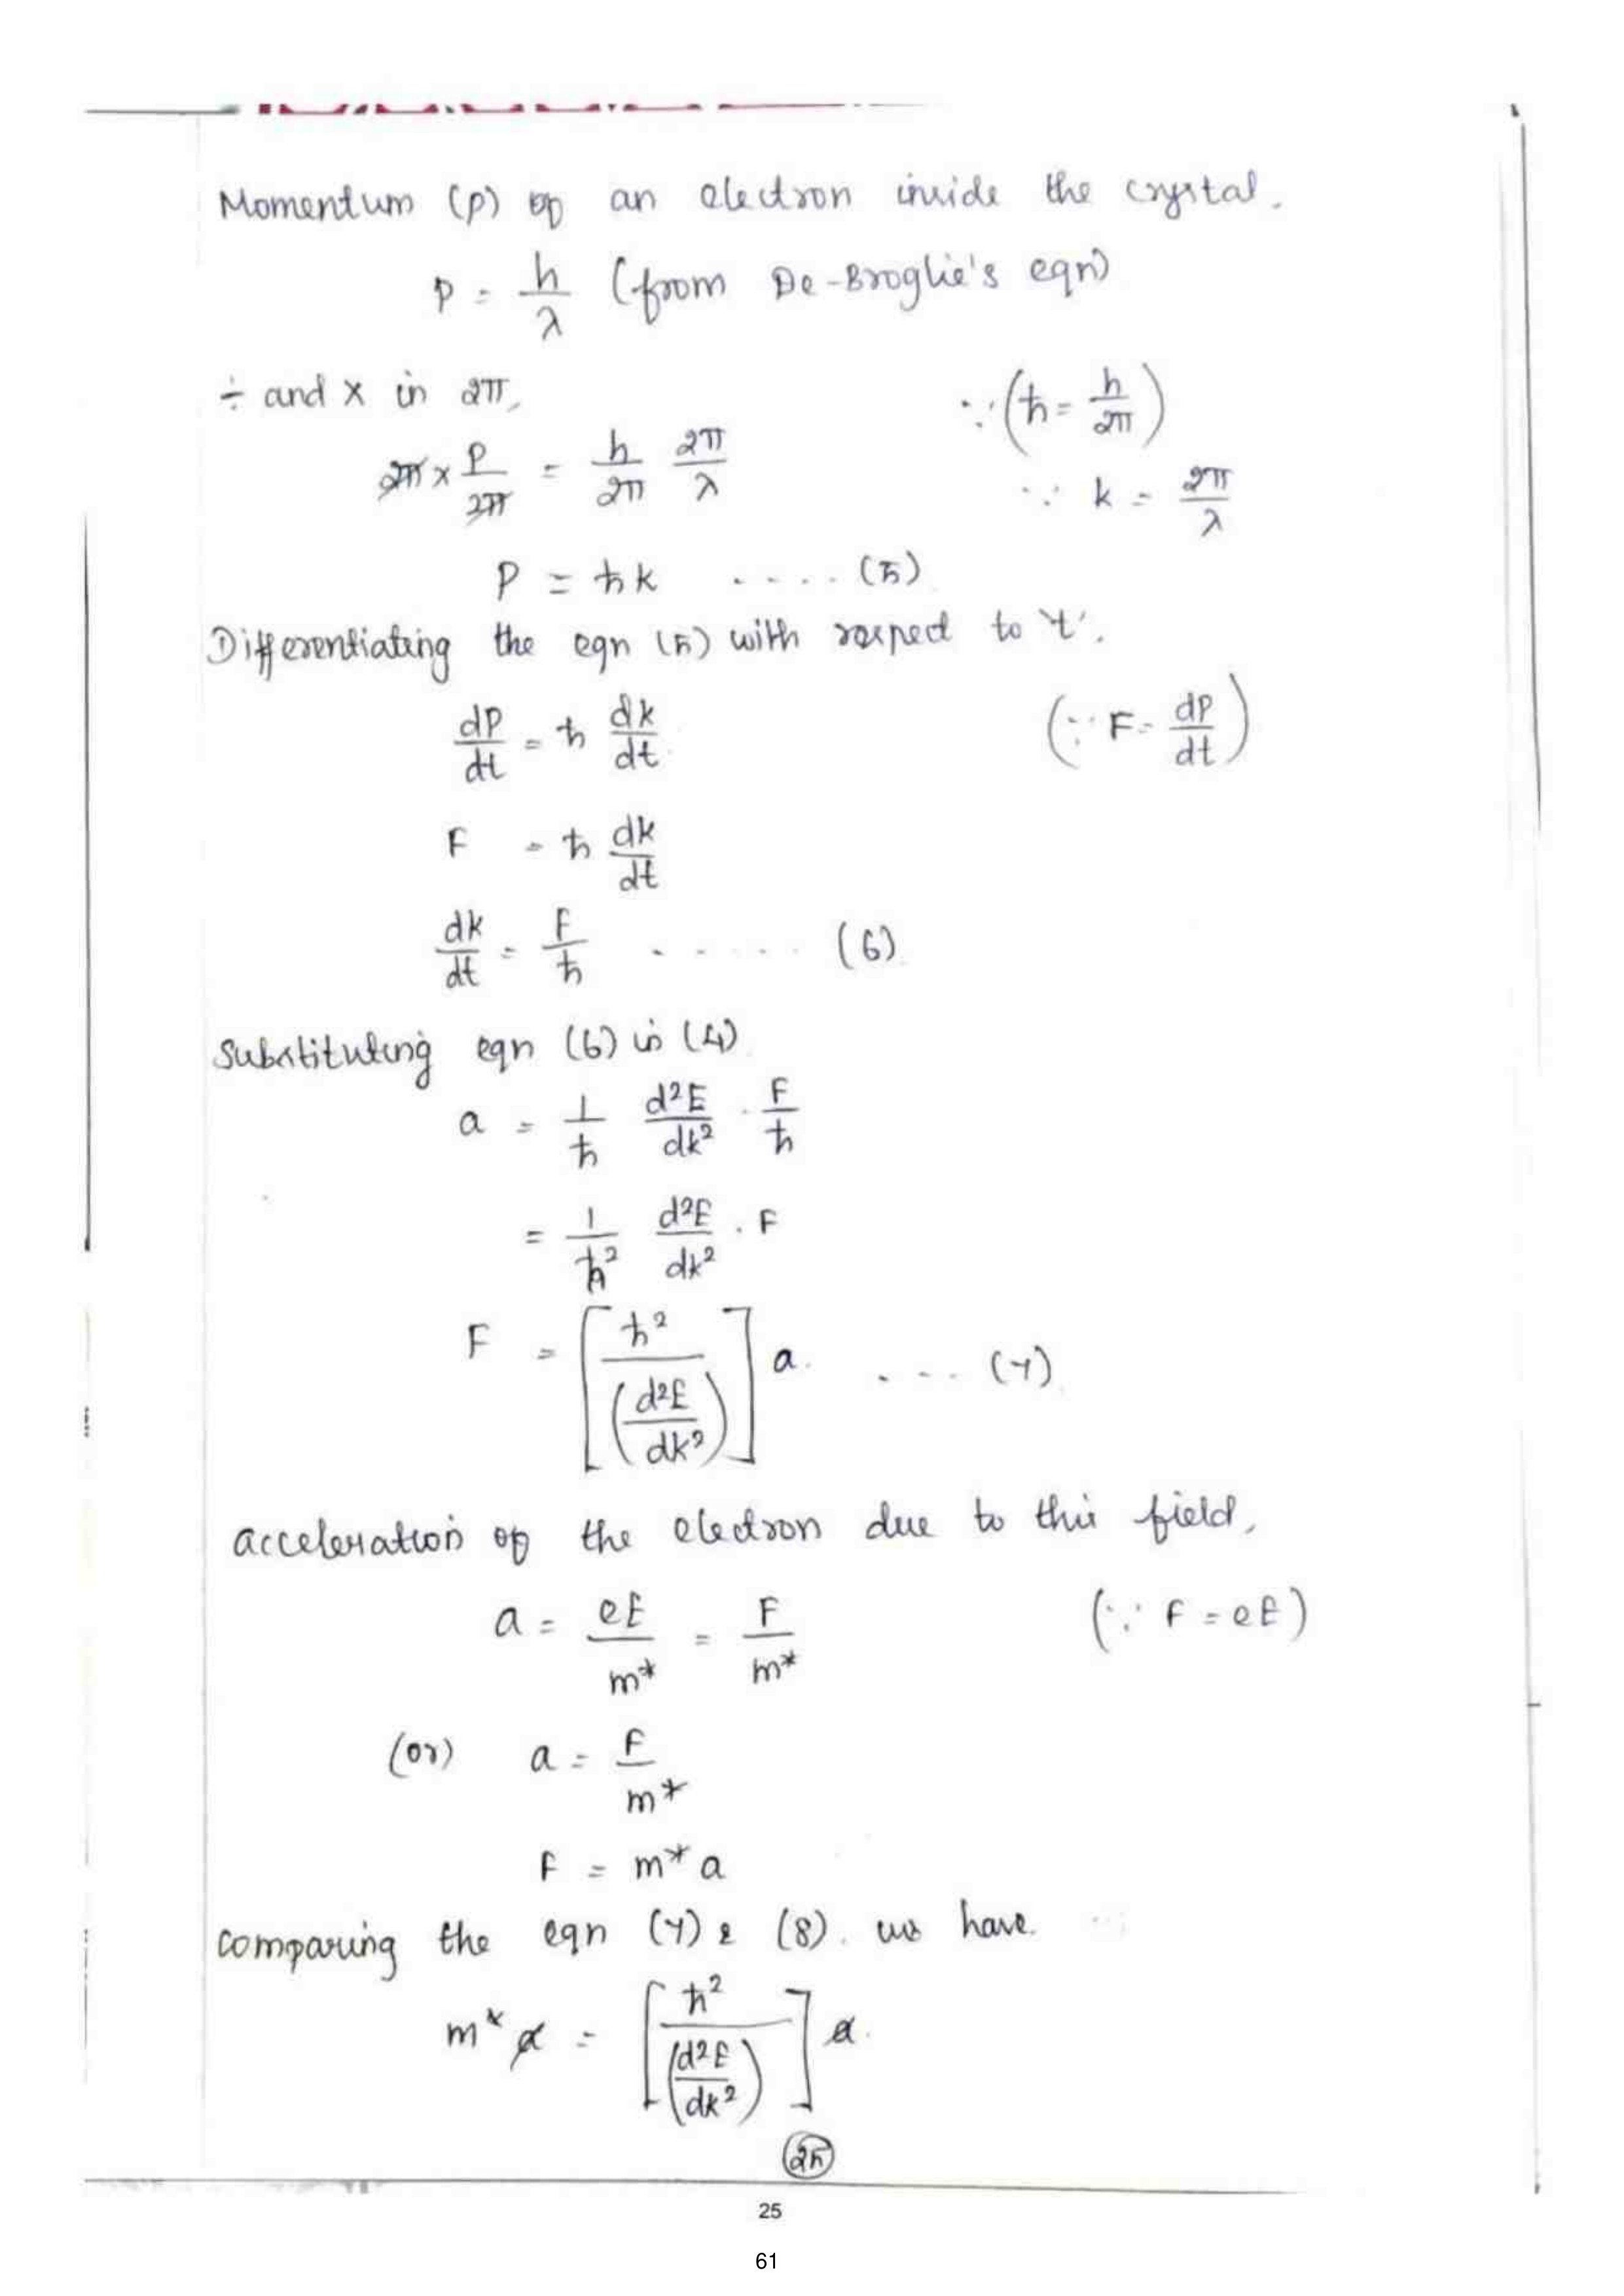 Momentum (p) of an electron inside the crystal.
p = h/λ (from De-Broglie's eqn)
÷ and x in 2π, ∵ (ħ = h/2π)
2π x p/2π = h/2π 2π/λ ∵ k = 2π/λ
P = ħk ....(5)
Differentiating the eqn (5) with respect to 't'.
dp/dt = ħ dk/dt (∵ F = dp/dt)
F = ħ dk/dt
dk/dt = F/ħ ..... (6)
Substituting eqn (6) in (4)
a = 1/ħ d²E/dk² . F/ħ
= 1/ħ² d²E/dk² . F
F = [ħ²/(d²E/dk²)] a. .... (7)
acceleration of the electron due to this field,
a = eE/m* = F/m* (∵ F = eE)
(or) a = F/m*
F = m* a
comparing the eqn (7) & (8). we have.
m* a = [ħ²/(d²E/dk²)] a.
25
25
61